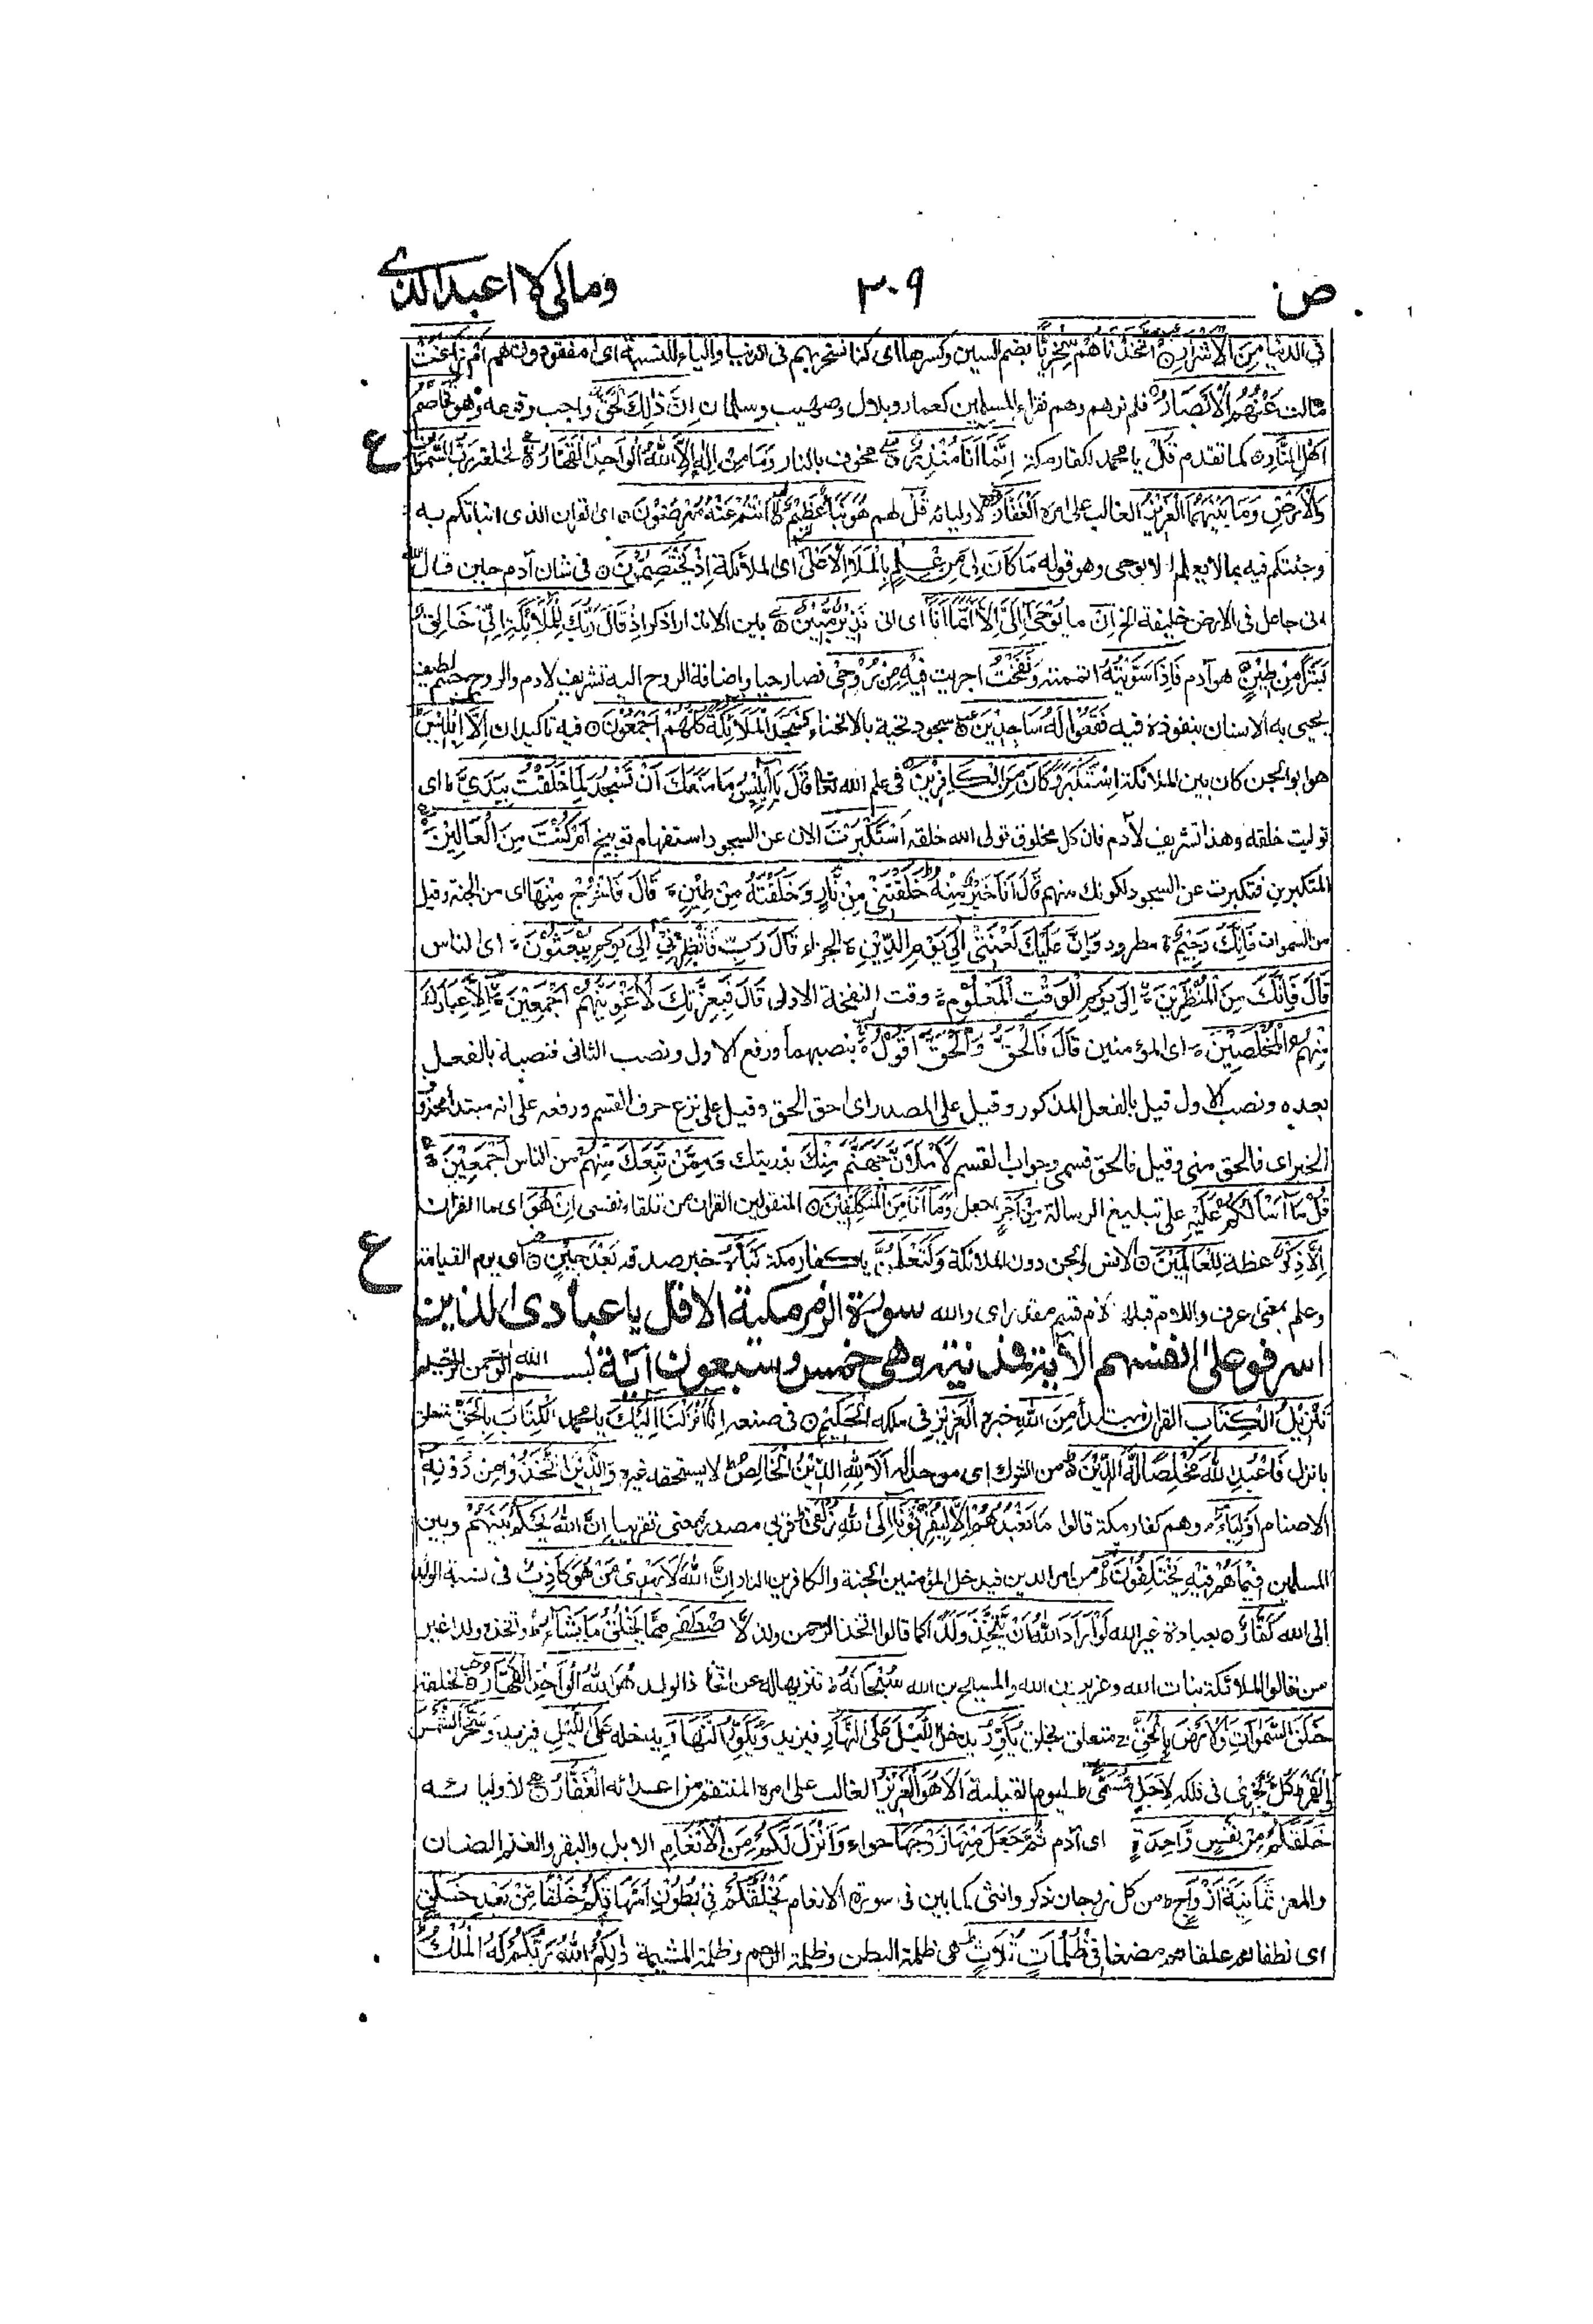 ص ٣٠٩ ومالى لا اعبد الذى
فى الدنيا مِنَ الْأَشْرَارِ ۝ اَتَّخَذْنَاهُمْ سِخْرِيًّا بضم السين وكسرها اى كنا نسخر بهم فى الدنيا والياء للنسبة اى امفقودون هم اَمْ زَاغَتْ
مالت عَنْهُمُ الْأَبْصَارُ ۝ فلم نرهم وهم فقراء المسلمين كعمار وبلال وصهيب وسلمان اِنَّ ذٰلِكَ لَحَقٌّ واجب وقوعه وهو تَخَاصُمُ
اَهْلِ النَّارِ ۝ كما تقدم قُلْ يا محمد لكفار مكة اِنَّمَا اَنَا مُنْذِرٌ مخوف بالنار وَمَا مِنْ اِلٰهٍ اِلَّا اللّٰهُ الْوَاحِدُ الْقَهَّارُ ۝ لخلقه رَبُّ السَّمٰوَاتِ ع
وَالْأَرْضِ وَمَا بَيْنَهُمَا الْعَزِيْزُ الغالب على امره الْغَفَّارُ ۝ لاوليائه قُلْ لهم هُوَ نَبَأٌ عَظِيْمٌ ۝ اَنْتُمْ عَنْهُ مُعْرِضُوْنَ ۝ اى القران الذى انبأتكم به
وجئتكم فيه بما لا يعلم الا بوحى وهو قوله مَا كَانَ لِىَ مِنْ عِلْمٍ بِالْمَلَاِ الْاَعْلٰى اى الملائكة اِذْ يَخْتَصِمُوْنَ ۝ فى شان آدم حين قال الله
انى جاعل فى الارض خليفة الخ اِنْ ما يُوْحٰى اِلَىَّ اِلَّا اَنَّمَا اَنَا اى انى نَذِيْرٌ مُّبِيْنٌ ۝ بين الانذار اذكر اِذْ قَالَ رَبُّكَ لِلْمَلَائِكَةِ اِنِّىْ خَالِقٌ
بَشَرًا مِّنْ طِيْنٍ ۝ هو آدم فَاِذَا سَوَّيْتُهٗ اتممته وَنَفَخْتُ اجريت فِيْهِ مِنْ رُّوْحِىْ فصار حيا واضافة الروح اليه تشريف لادم والروح جسم لطيف
يحيى به الانسان بنفوذه فيه فَقَعُوْا لَهٗ سَاجِدِيْنَ ۝ سجود تحية بالانحناء فَسَجَدَ الْمَلَائِكَةُ كُلُّهُمْ اَجْمَعُوْنَ ۝ فيه تاكيدان اِلَّا اِبْلِيْسَ
هو ابو الجن كان بين الملائكة اِسْتَكْبَرَ وَكَانَ مِنَ الْكَافِرِيْنَ ۝ فى علم الله تعا قَالَ يَا اِبْلِيْسُ مَا مَنَعَكَ اَنْ تَسْجُدَ لِمَا خَلَقْتُ بِيَدَىَّ ط اى
توليت خلقه وهذا تشريف لآدم فان كل مخلوق تولى الله خلقه اَسْتَكْبَرْتَ الان عن السجود استفهام توبيخ اَمْ كُنْتَ مِنَ الْعَالِيْنَ ۝
المتكبرين فتكبرت عن السجود لكونك منهم قَالَ اَنَا خَيْرٌ مِّنْهُ خَلَقْتَنِىْ مِنْ نَّارٍ وَخَلَقْتَهٗ مِنْ طِيْنٍ ۝ قَالَ فَاخْرُجْ مِنْهَا اى من الجنة وقيل
من السموات فَاِنَّكَ رَجِيْمٌ ۝ مطرود وَاِنَّ عَلَيْكَ لَعْنَتِىْ اِلٰى يَوْمِ الدِّيْنِ ۝ الجزاء قَالَ رَبِّ فَاَنْظِرْنِىْ اِلٰى يَوْمِ يُبْعَثُوْنَ ۝ اى الناس
قَالَ فَاِنَّكَ مِنَ الْمُنْظَرِيْنَ ۝ اِلٰى يَوْمِ الْوَقْتِ الْمَعْلُوْمِ ۝ وقت النفخة الاولى قَالَ فَبِعِزَّتِكَ لَاُغْوِيَنَّهُمْ اَجْمَعِيْنَ ۝ اِلَّا عِبَادَكَ
مِنْهُمُ الْمُخْلَصِيْنَ ۝ اى المؤمنين قَالَ فَالْحَقُّ وَالْحَقَّ اَقُوْلُ ۝ بنصبهما ورفع الاول ونصب الثانى فنصبه بالفعل
بعده ونصب الاول قيل بالفعل المذكور وقيل على المصدر اى احق الحق وقيل على نزع حرف القسم ورفعه على انه مبتدأ محذوف
الخبر اى فالحق منى وقيل فالحق قسمى وجواب القسم لَاَمْلَاَنَّ جَهَنَّمَ مِنْكَ بذريتك وَمِمَّنْ تَبِعَكَ مِنْهُمْ من الناس اَجْمَعِيْنَ ۝
قُلْ مَا اَسْاَلُكُمْ عَلَيْهِ على تبليغ الرسالة مِنْ اَجْرٍ جعل وَّمَا اَنَا مِنَ الْمُتَكَلِّفِيْنَ ۝ المتقولين القران من تلقاء نفسى اِنْ هُوَ اى ما القران
اِلَّا ذِكْرٌ عظة لِلْعَالَمِيْنَ ۝ الانس والجن دون الملائكة وَلَتَعْلَمُنَّ يا كفار مكة نَبَاَهٗ خبر صدقه بَعْدَ حِيْنٍ ۝ اى يوم القيامة ع
وعلم بمعنى عرف واللام قبلها لام قسم مقدر اى والله سورة الزمر مكية الا قل يا عبادى الذين
اسرفوا على انفسهم الآية فمدنية وهى خمس وسبعون آية بسم الله الرحمن الرحيم
تَنْزِيْلُ الْكِتَابِ القران مبتدأ مِنَ اللّٰهِ خبره الْعَزِيْزِ فى ملكه الْحَكِيْمِ ۝ فى صنعه اِنَّا اَنْزَلْنَا اِلَيْكَ يا محمد الْكِتَابَ بِالْحَقِّ متعلق
بانزل فَاعْبُدِ اللّٰهَ مُخْلِصًا لَّهُ الدِّيْنَ ۝ من الشرك اى موحدا له اَلَا لِلّٰهِ الدِّيْنُ الْخَالِصُ لا يستحقه غيره وَالَّذِيْنَ اتَّخَذُوْا مِنْ دُوْنِهٖ
الاصنام اَوْلِيَاءَ وهم كفار مكة قالوا مَا نَعْبُدُهُمْ اِلَّا لِيُقَرِّبُوْنَا اِلَى اللّٰهِ زُلْفٰى قربى مصدر بمعنى تقريبا اِنَّ اللّٰهَ يَحْكُمُ بَيْنَهُمْ وبين
المسلمين فِيْمَا هُمْ فِيْهِ يَخْتَلِفُوْنَ ط من امر الدين فيدخل المؤمنين الجنة والكافرين النار اِنَّ اللّٰهَ لَا يَهْدِىْ مَنْ هُوَ كَاذِبٌ فى نسبة الولد
الى الله كَفَّارٌ ۝ بعبادة غير الله لَوْ اَرَادَ اللّٰهُ اَنْ يَّتَّخِذَ وَلَدًا كما قالوا اتخذ الرحمن ولدا لَّاصْطَفٰى مِمَّا يَخْلُقُ مَا يَشَاءُ واتخذه ولدا غير
من قالوا الملائكة بنات الله وعزير بن الله والمسيح بن الله سُبْحَانَهٗ ط تنزيها له عن اتخاذ الولد هُوَ اللّٰهُ الْوَاحِدُ الْقَهَّارُ ۝ لخلقه
خَلَقَ السَّمٰوَاتِ وَالْاَرْضَ بِالْحَقِّ ج متعلق بخلق يُكَوِّرُ يدخل اللَّيْلَ عَلَى النَّهَارِ فيزيد وَيُكَوِّرُ النَّهَارَ يدخله عَلَى اللَّيْلِ فيزيد وَسَخَّرَ الشَّمْسَ
وَالْقَمَرَ ط كُلٌّ يَّجْرِىْ فى فلكه لِاَجَلٍ مُّسَمًّى ط ليوم القيامة اَلَا هُوَ الْعَزِيْزُ الغالب على امره المنتقم من اعدائه الْغَفَّارُ ۝ لاوليائه
خَلَقَكُمْ مِّنْ نَّفْسٍ وَّاحِدَةٍ اى آدم ثُمَّ جَعَلَ مِنْهَا زَوْجَهَا حواء وَاَنْزَلَ لَكُمْ مِّنَ الْاَنْعَامِ الابل والبقر والغنم الضان
والمعز ثَمَانِيَةَ اَزْوَاجٍ ط من كل زوجان ذكر وانثى كما بين فى سورة الانعام يَخْلُقُكُمْ فِىْ بُطُوْنِ اُمَّهَاتِكُمْ خَلْقًا مِّنْ بَعْدِ خَلْقٍ
اى نطفا ثم علقا ثم مضغا فِىْ ظُلُمَاتٍ ثَلَاثٍ ط هى ظلمة البطن وظلمة الرحم وظلمة المشيمة ذٰلِكُمُ اللّٰهُ رَبُّكُمْ لَهُ الْمُلْكُ